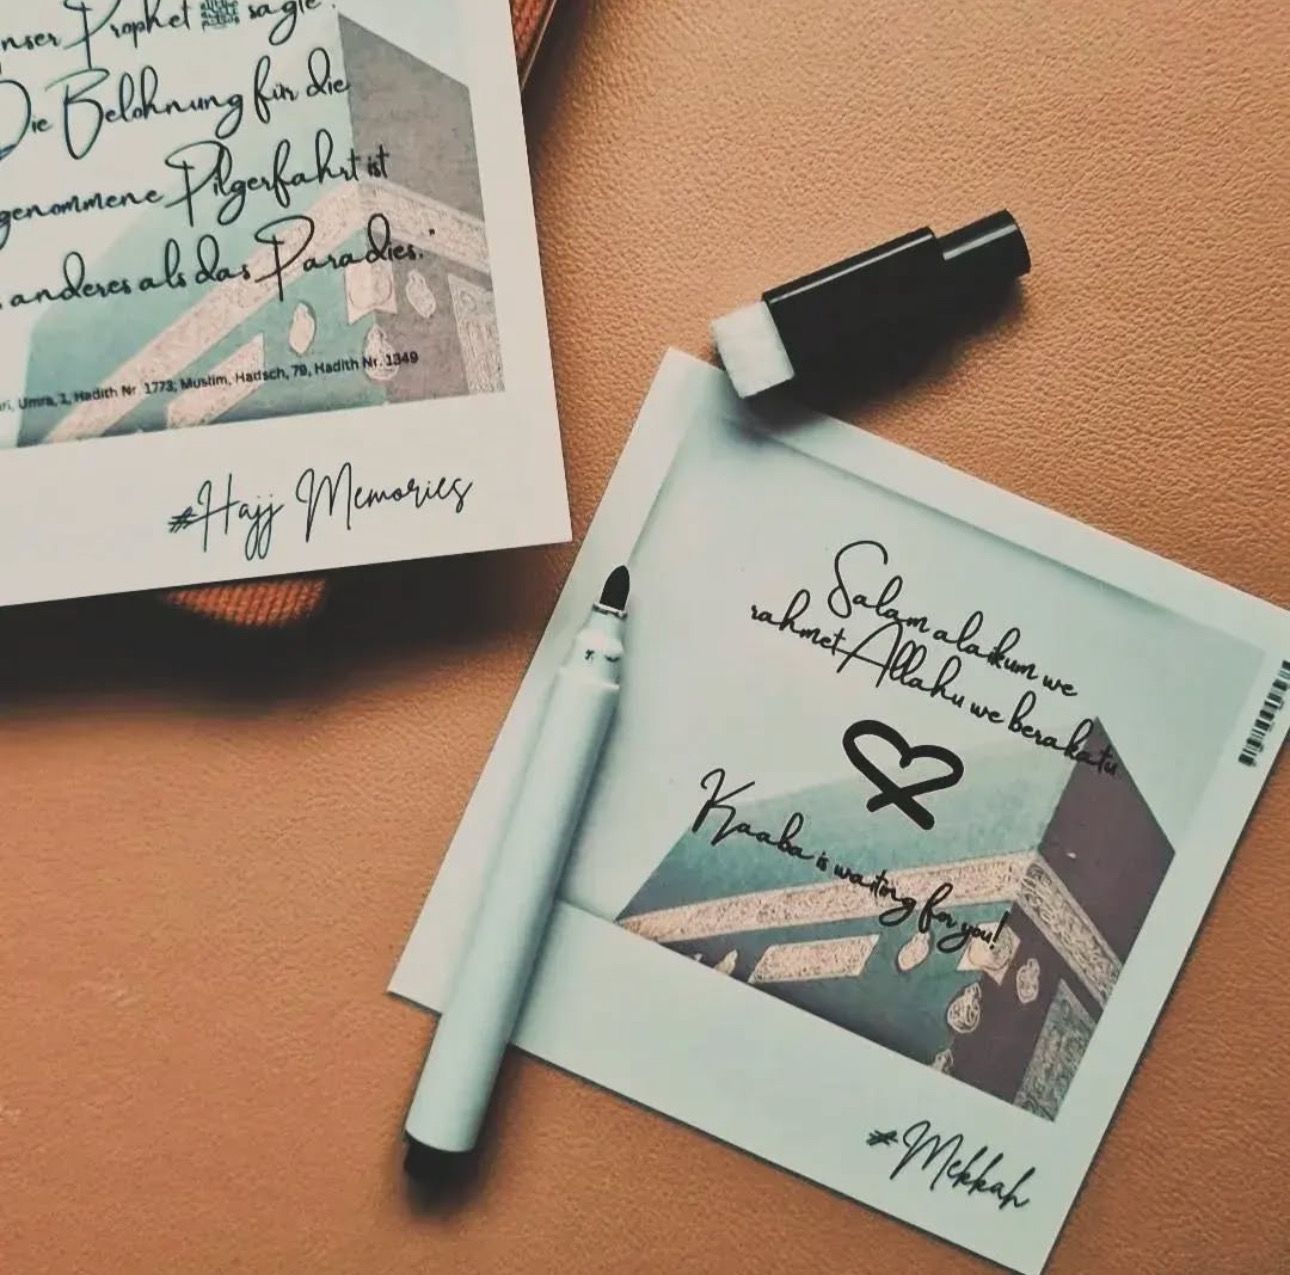 Prophet ﷺ sagte:
Die Belohnung für die
genommene Pilgerfahrt ist
anderes als das Paradies."
Umra, 1, Hadith Nr. 1773; Muslim, Hadsch, 79, Hadith Nr. 1349
#Hajj Memories
Salam alaikum we
rahmet Allahu we berakatu
Kaaba is waiting for you!
#Mekkah